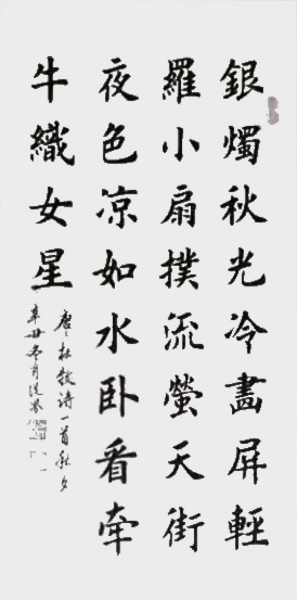 銀燭秋光冷畵屏輕
羅小扇撲流螢天街
夜色凉如水卧看牽
牛織女星
唐杜牧詩一首秋夕
辛丑冬月